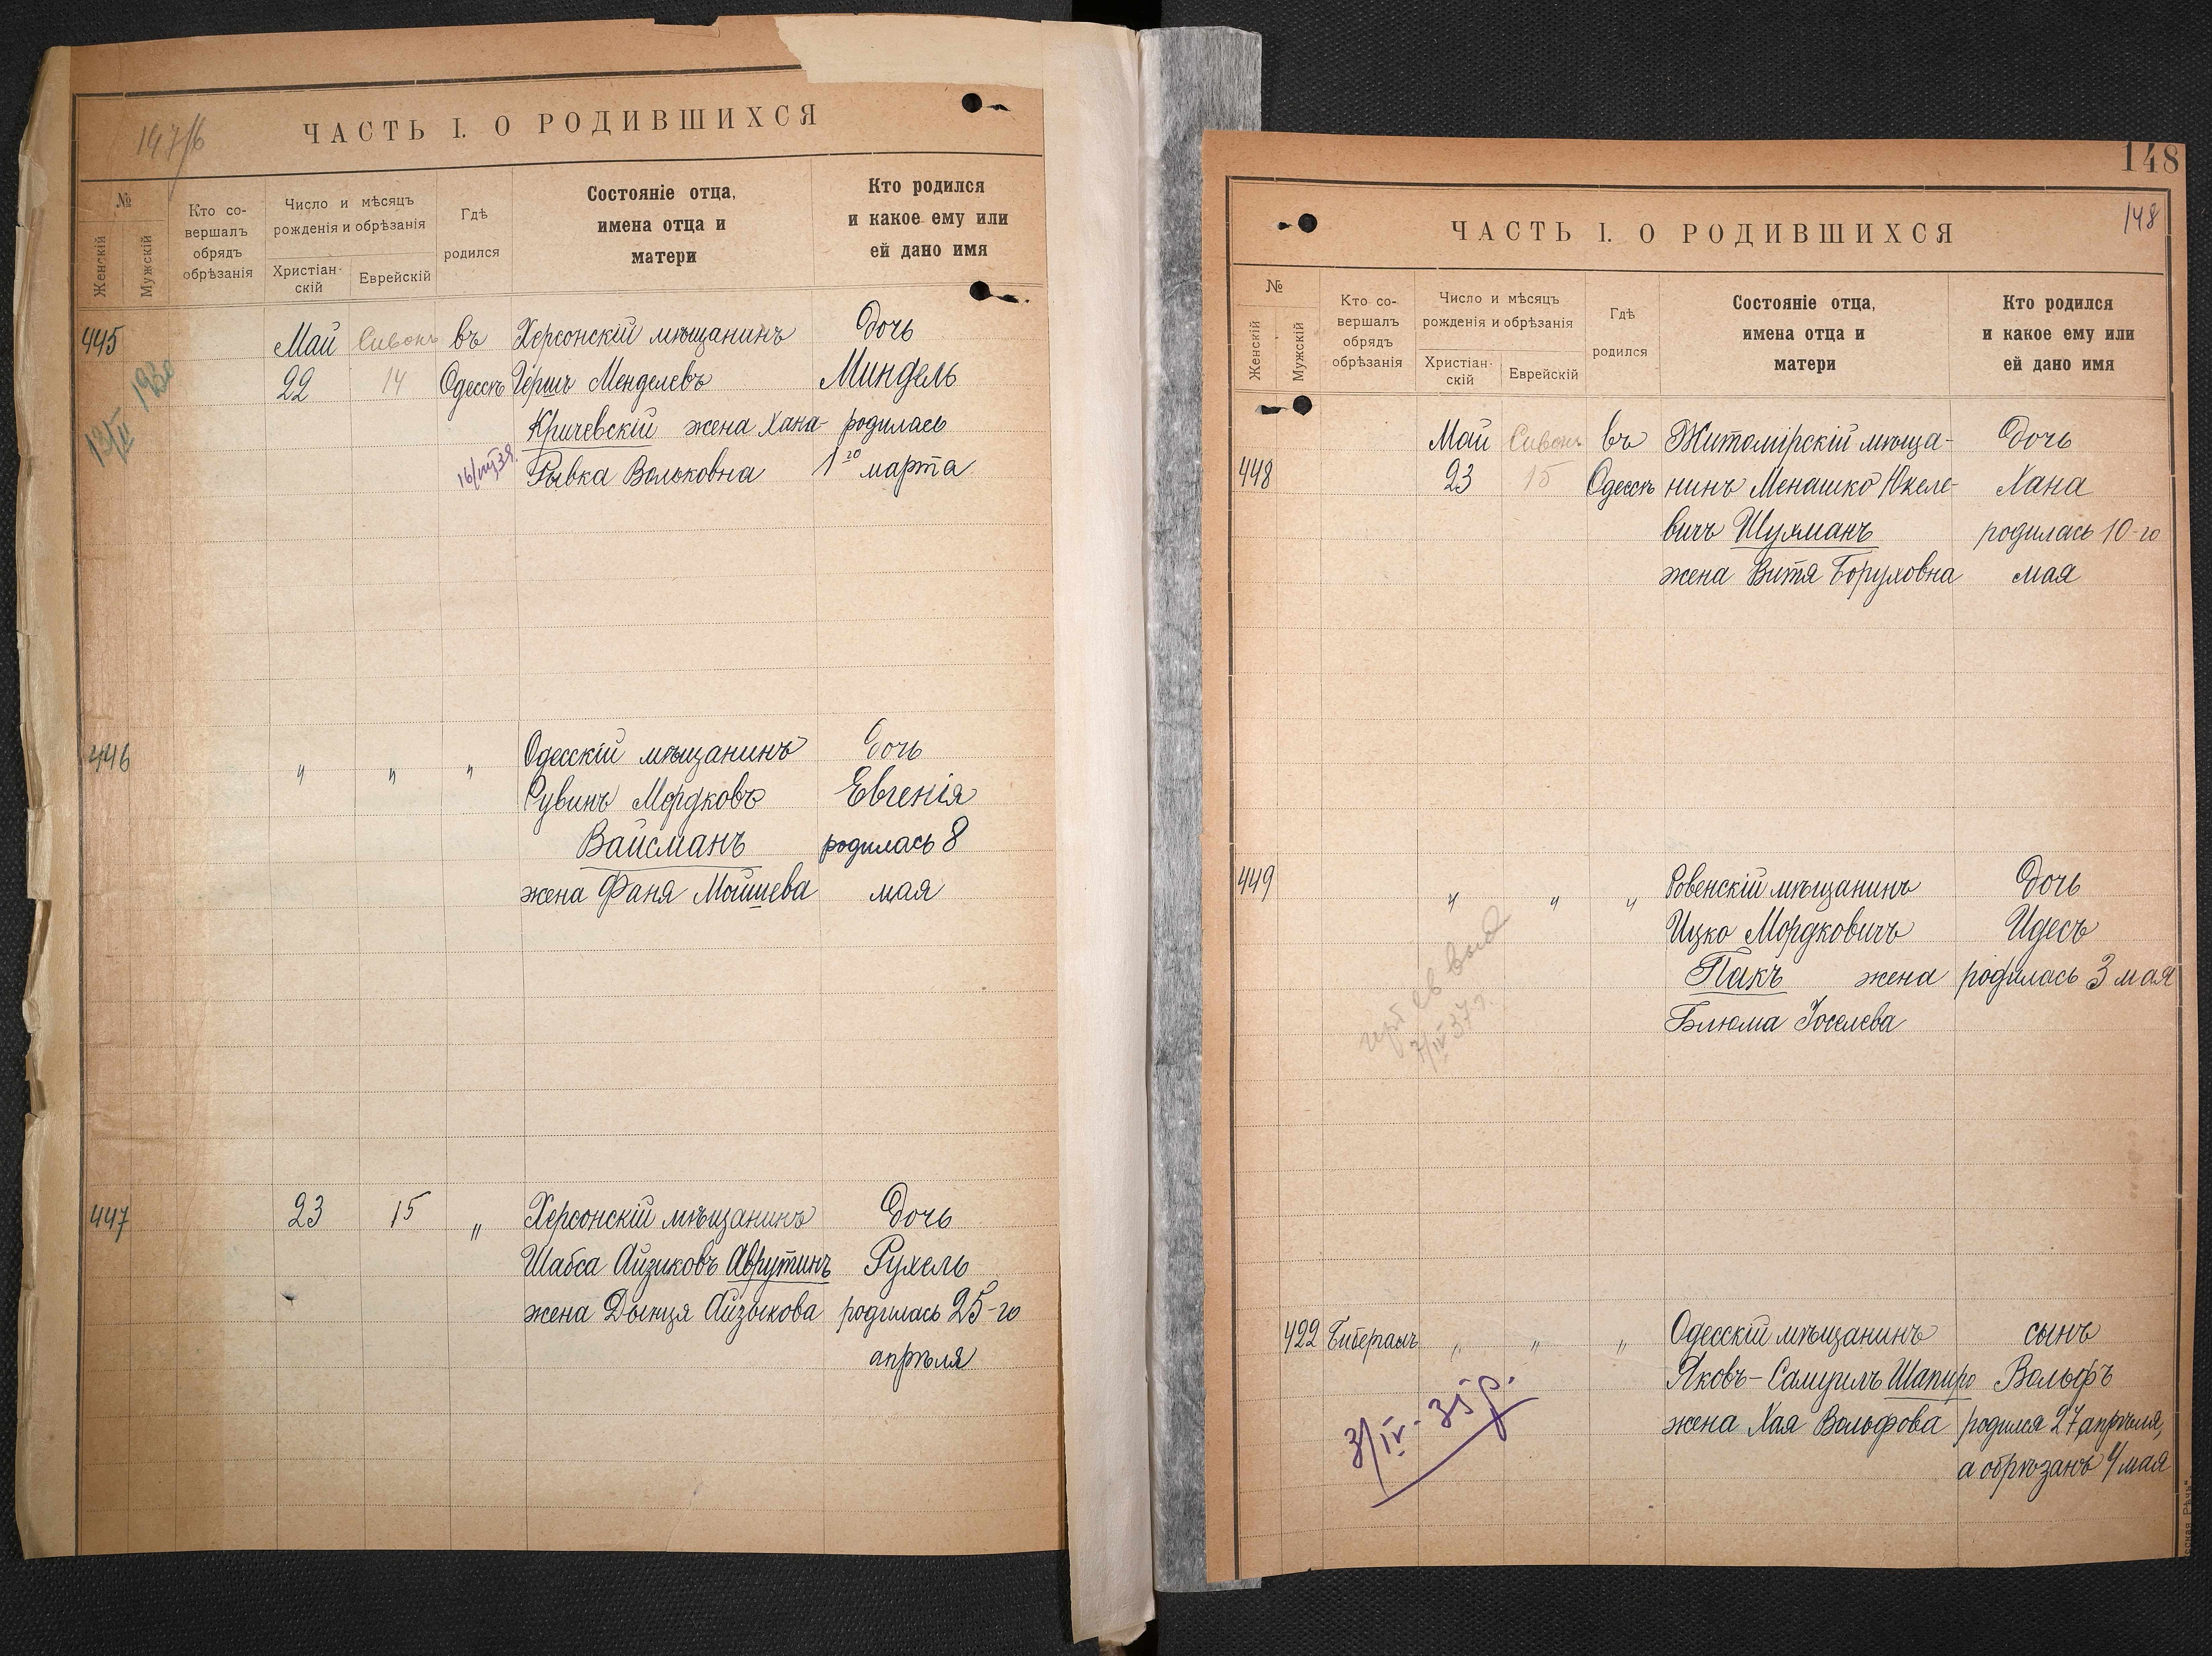 ЧАСТЬ I. О РОДИВШИХСЯ
№
Женскій
Мужскій
Кто со-
вершалъ
обрядъ
обрѣзанія
Число и мѣсяцъ
рожденія и обрѣзанія
Христіан-
скій
Еврейскій
Гдѣ
родился
Состояніе отца,
имена отца и
матери
Кто родился
и какое ему или
ей дано имя
445 Май Сивонъ въ Херсонскій мѣщанинъ Дочь
22 14 Одессѣ Гершъ Менделевъ Миндель
Кричевскій жена Хана- родилась
Рывка Вольковна 1го марта
13/II 1930
446 " " " Одесскій мѣщанинъ Дочь
Рувинъ Мордковъ Евгенія
Вайсманъ родилась 8
жена Фаня Мойшева мая
447 23 15 " Херсонскій мѣщанинъ Дочь
Шабса Айзиковъ Аврутинъ Рухель
жена Дынця Айзыкова родилась 25-го
апрѣля
148
148
ЧАСТЬ I. О РОДИВШИХСЯ
№
Женскій
Мужскій
Кто со-
вершалъ
обрядъ
обрѣзанія
Число и мѣсяцъ
рожденія и обрѣзанія
Христіан-
скій
Еврейскій
Гдѣ
родился
Состояніе отца,
имена отца и
матери
Кто родился
и какое ему или
ей дано имя
Май Сивонъ въ Житомірскій мѣща- Дочь
448 23 15 Одессѣ нинъ Менашко Юкеле- Хана
вичъ Шухманъ родилась 10-го
жена Витя Боруховна мая
449 " " " Ровенскій мѣщанинъ Дочь
Ицко Мордковичъ Идесъ
Пакъ жена родилась 3 мая
Блюма Іоселева
7/IV 37 г.
422 Бибергалъ " " " Одесскій мѣщанинъ сынъ
Яковъ-Самуилъ Шапиро Вольфъ
жена Хая Вольфова родился 27 апрѣля,
а обрѣзанъ 4 мая
3/IV-35 р.